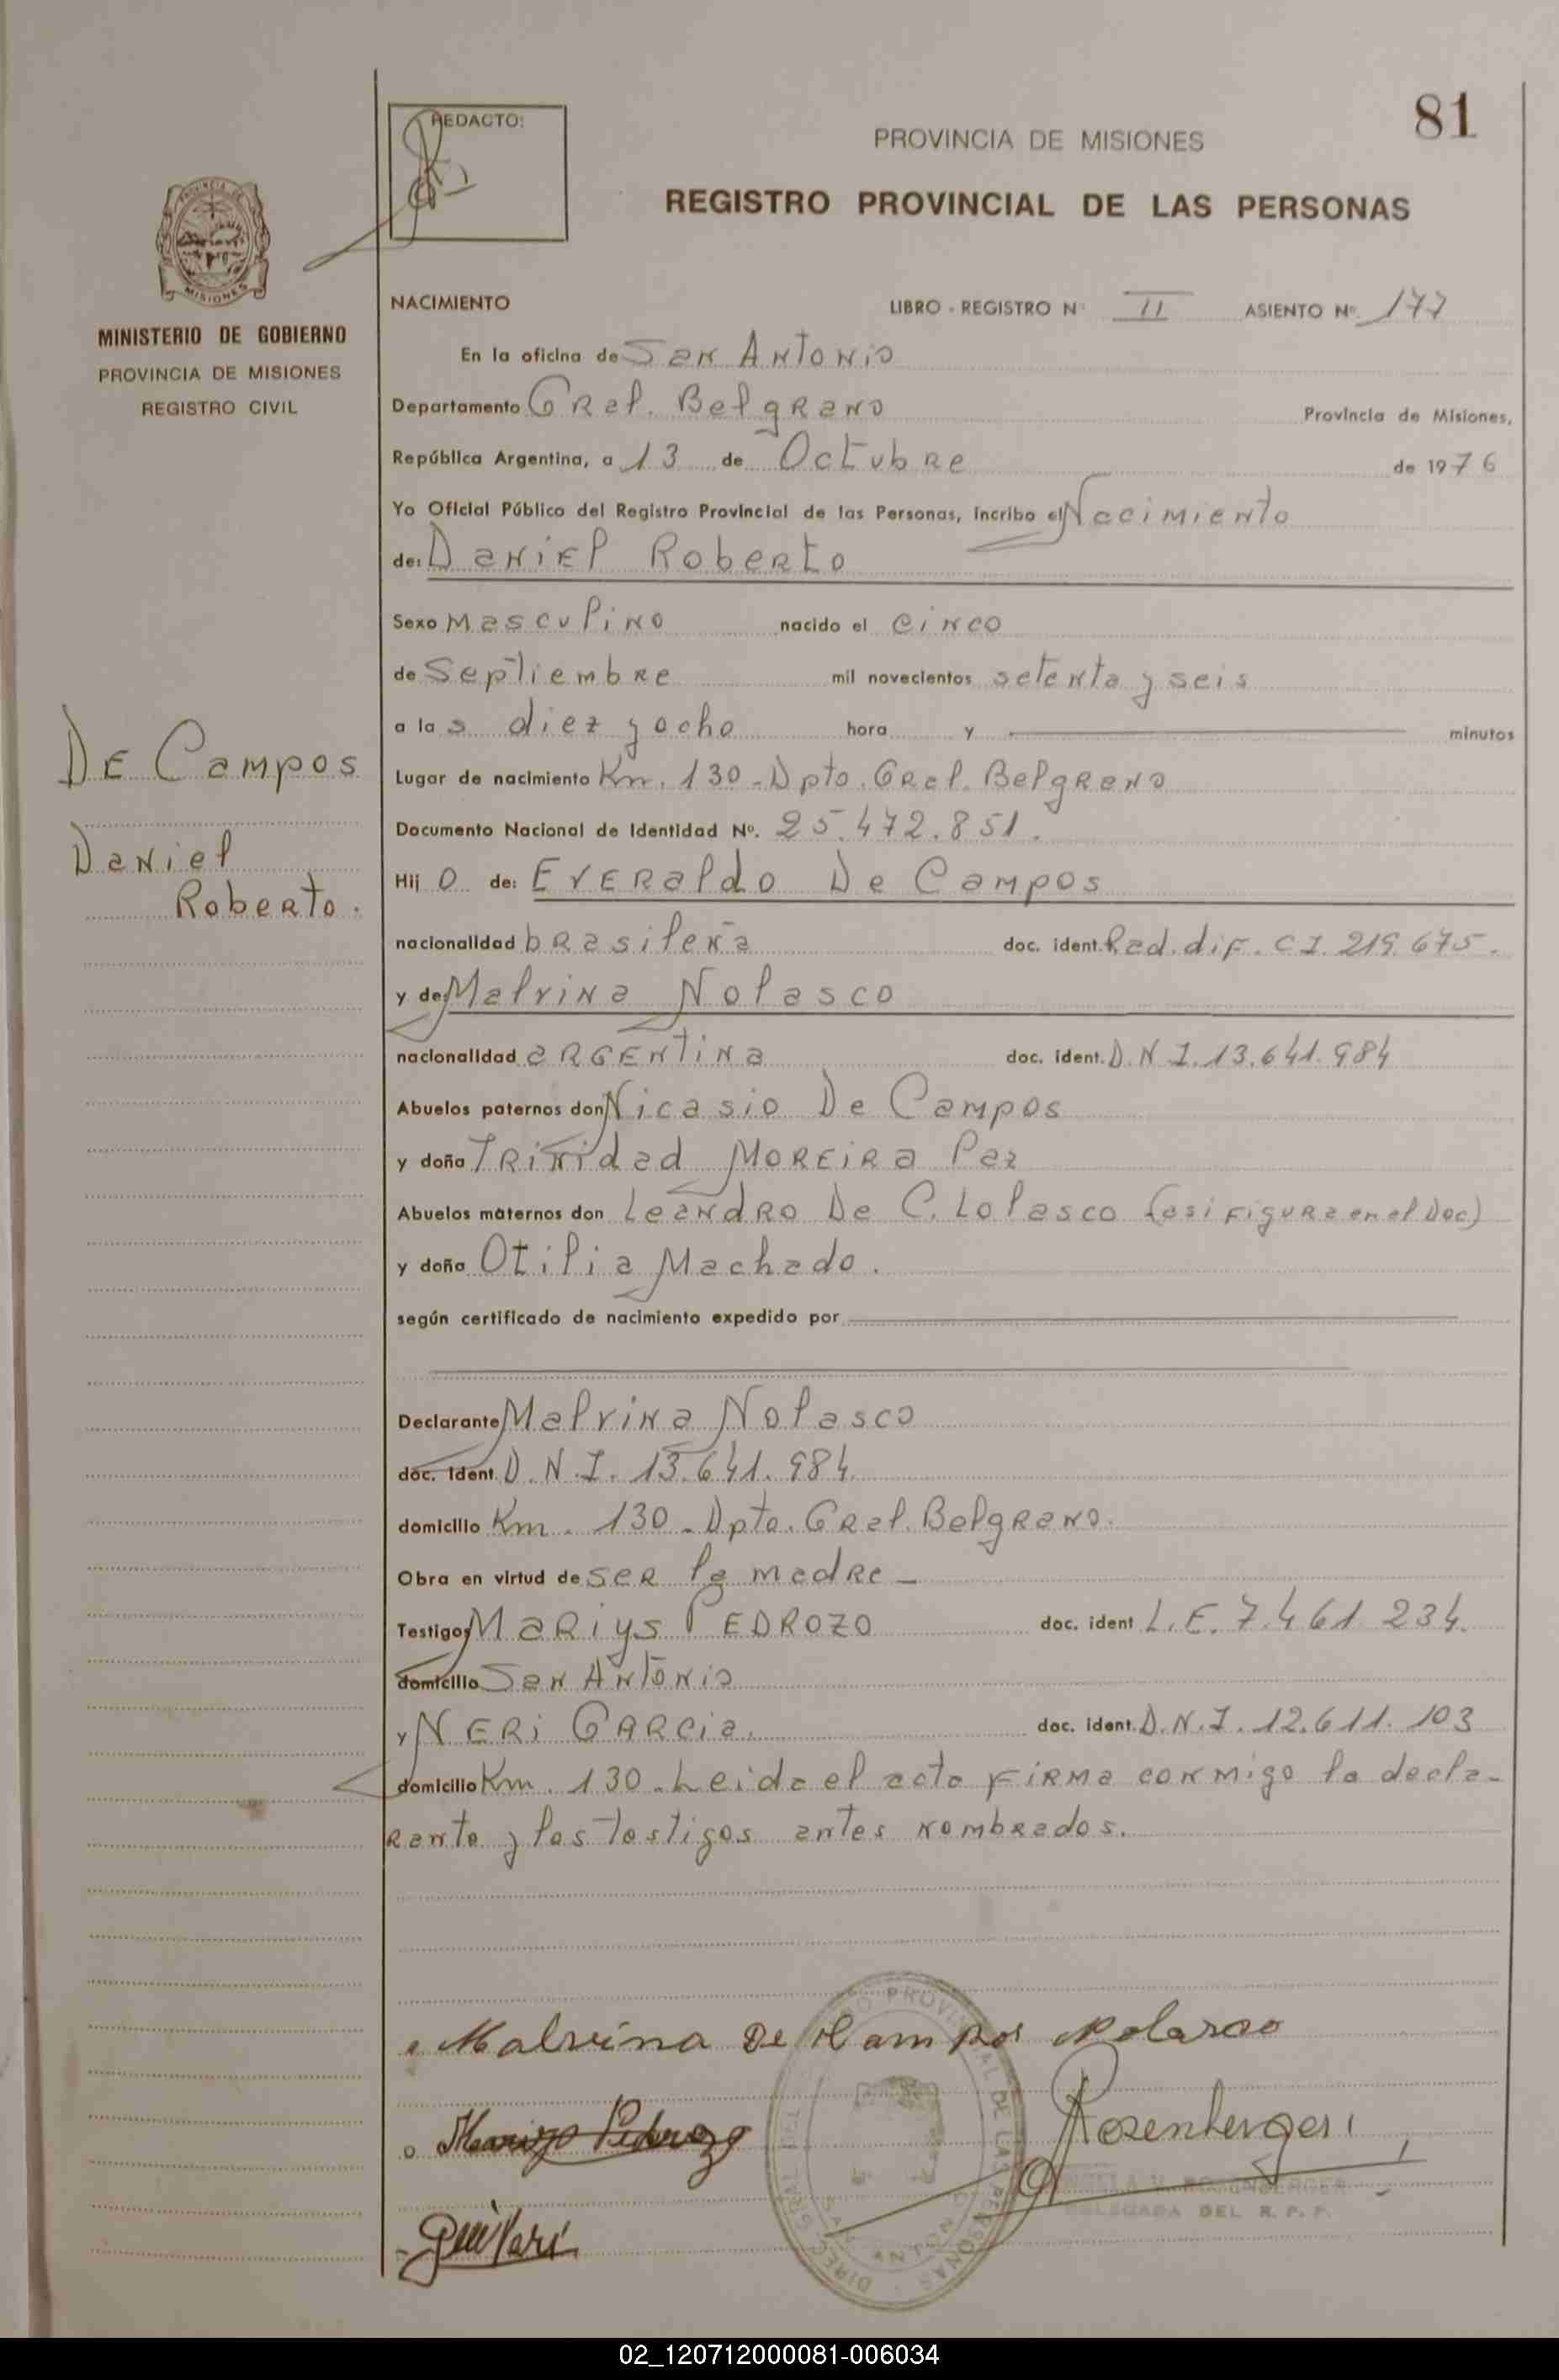 81
REDACTO:
PROVINCIA DE MISIONES
REGISTRO PROVINCIAL DE LAS PERSONAS
MISIONES
MINISTERIO DE GOBIERNO
PROVINCIA DE MISIONES
REGISTRO CIVIL
NACIMIENTO LIBRO - REGISTRO Nº II ASIENTO Nº 177
En la oficina de San Antonio
Departamento Gral. Belgrano Provincia de Misiones,
República Argentina, a 13 de Octubre de 1976
Yo Oficial Público del Registro Provincial de las Personas, incribo el Nacimiento
de: Daniel Roberto
Sexo Masculino nacido el cinco
de Septiembre mil novecientos setenta y seis
a la s diez y ocho hora y minutos
De Campos
Daniel
Roberto.
Lugar de nacimiento Km. 130 - Dpto. Gral. Belgrano
Documento Nacional de Identidad Nº. 25.472.851.
Hij o de: Everaldo De Campos
nacionalidad brasileña doc. ident. Rad. dif. C I. 219.675.
y de Malvina Nolasco
nacionalidad argentina doc. ident. D. N I. 13.641.984
Abuelos paternos don Nicasio De Campos
y doña Trinidad Moreira Paz
Abuelos maternos don Leandro De C. Lolasco (asi figura en el Doc)
y doña Otilia Machado.
según certificado de nacimiento expedido por
Declarante Malvina Nolasco
doc. ident. D. N. I. 13.641.984.
domicilio Km. 130 - Dpto. Gral. Belgrano.
Obra en virtud de ser la madre -
Testigos Mariys Pedrozo doc. ident L. E. 7.461.234.
domicilio San Antonio
y Neri Garcia. doc. ident. D. N. I. 12.611.103
domicilio Km. 130 - Leida el acta firma conmigo la decla-
rante y los testigos antes nombrados.
Malvina De Campos Nolasco
Pedrozo
Rosenberger
DELEGADA DEL R. P. P.
02_120712000081-006034